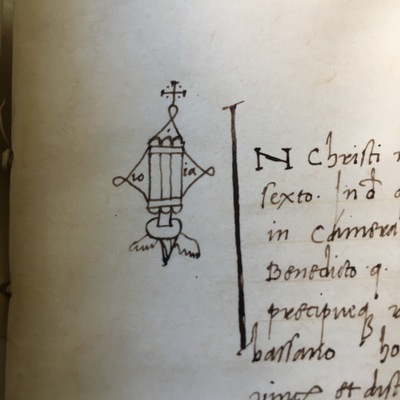 io ia
N Christi
sexto. Ind
in Camera
Benedicto q.
precipueq
bassano ho
et dist